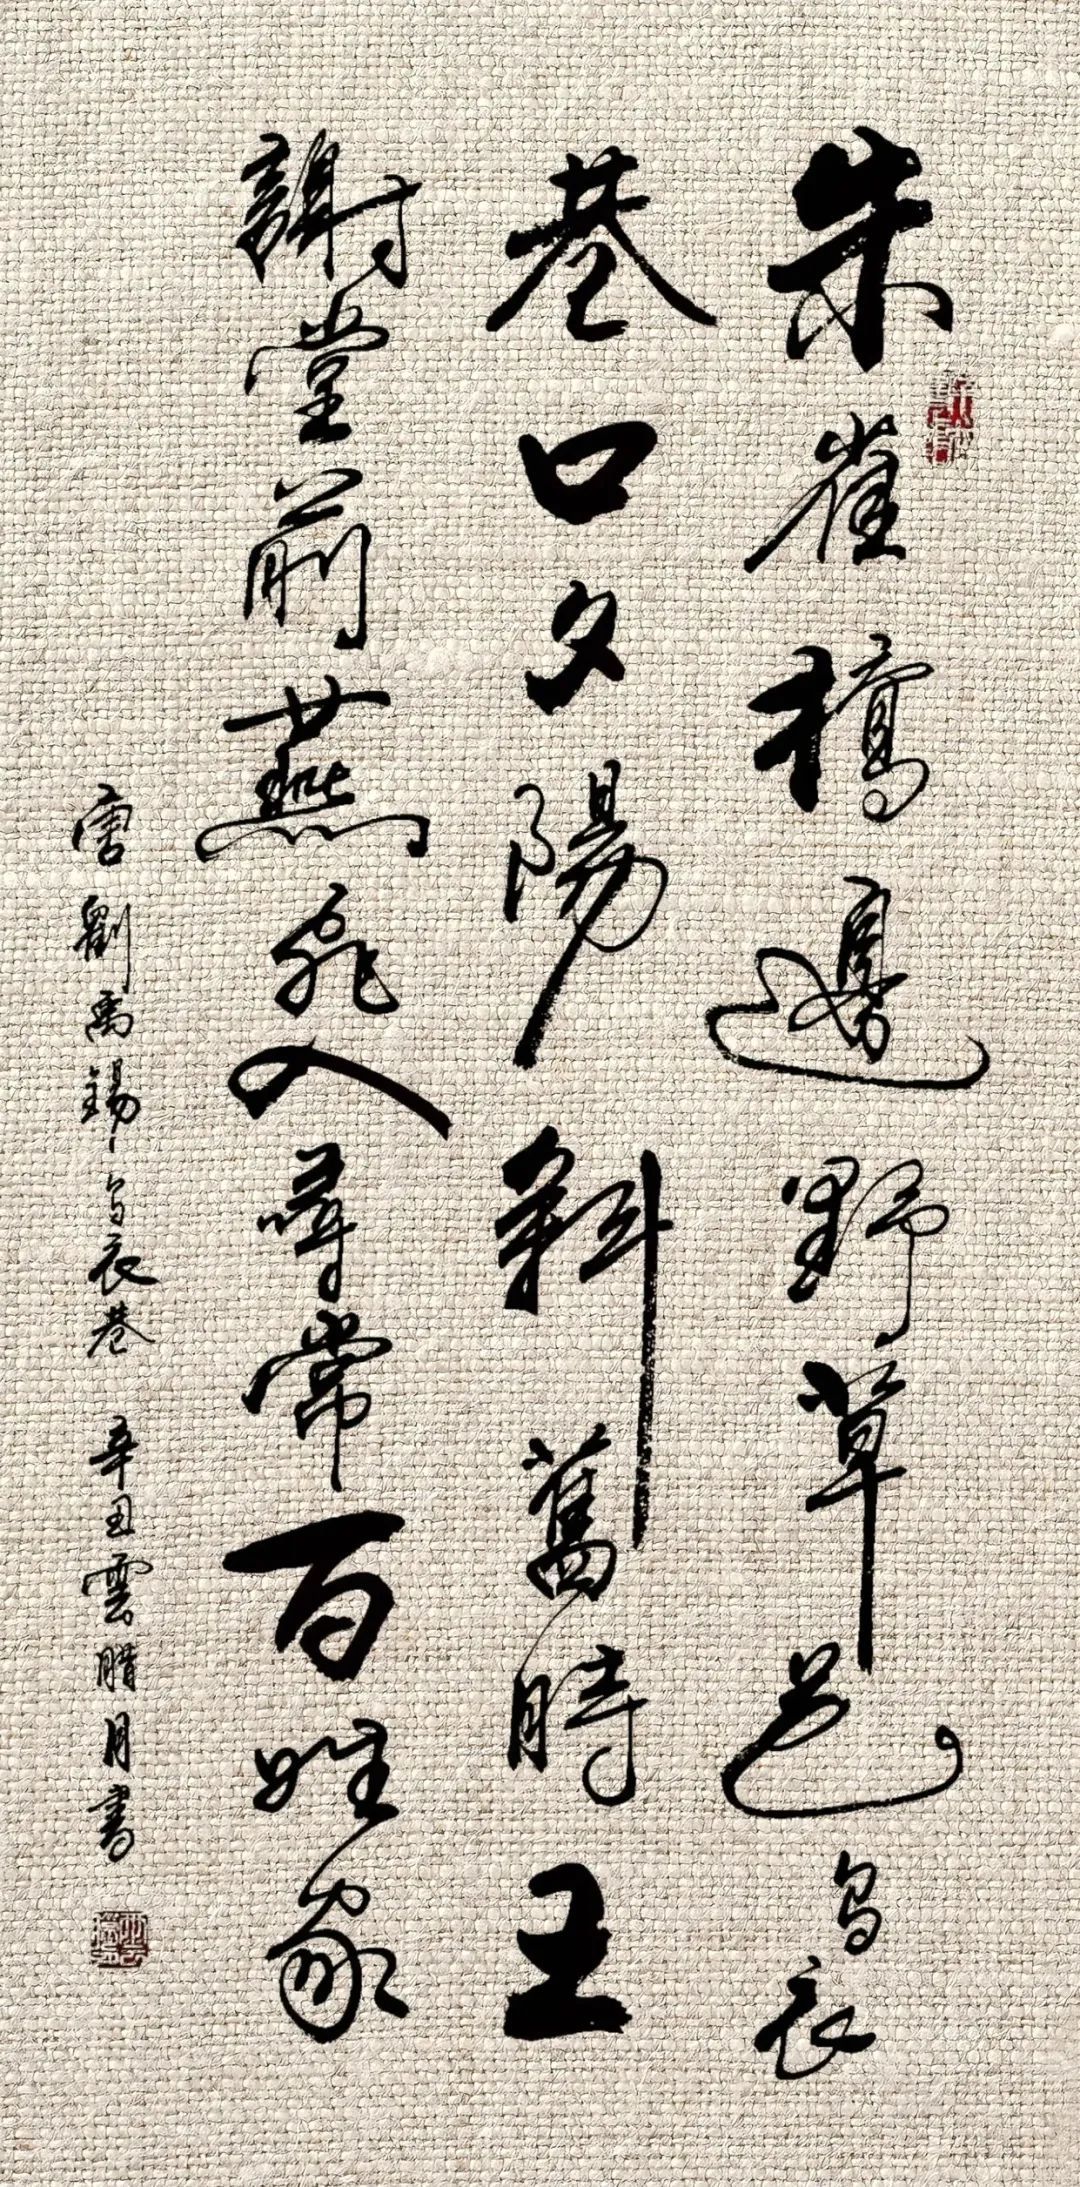 朱雀橋邊野草色烏衣
巷口夕陽斜舊時王
謝堂前燕飛入尋常百姓家
唐劉禹錫烏衣巷 辛丑雲腊月書